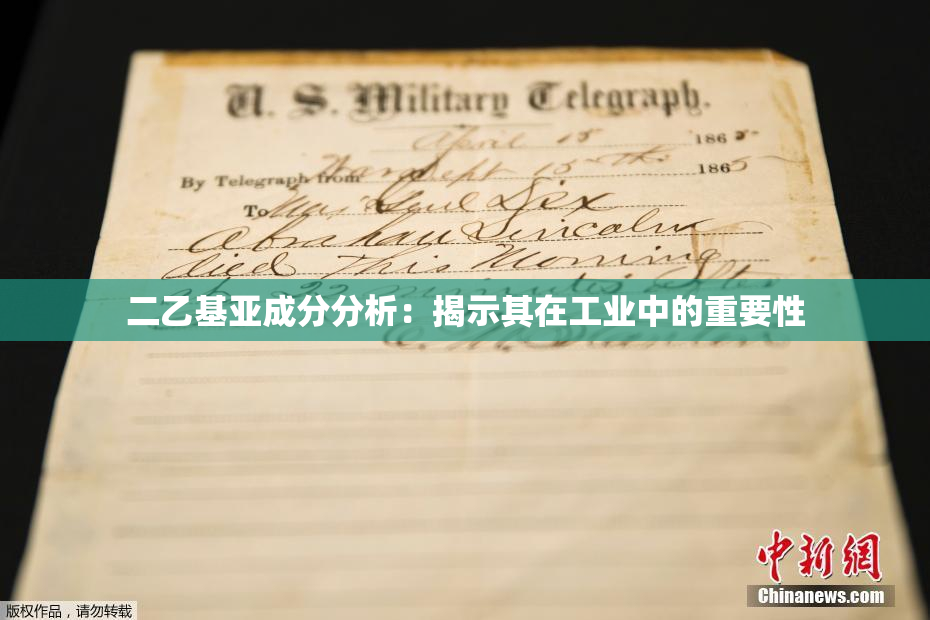 U. S. Military Telegraph.
April 15 1865
By Telegraph from War Dept 15th 1865
To Maj Genl Dix
Abraham Lincoln
died this Morning
at 22 minutes after
二乙基亚成分分析：揭示其在工业中的重要性
E. M. Stanton
中新網
Chinanews.com
版权作品，请勿转载